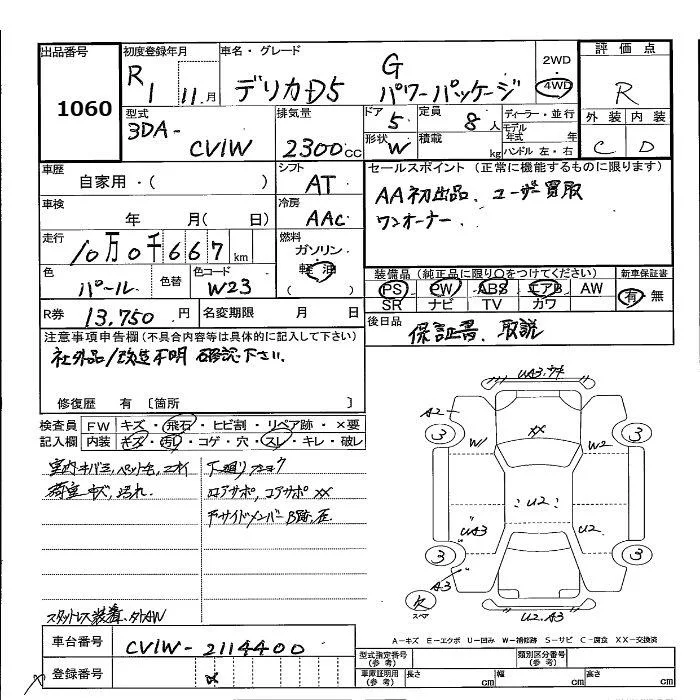 出品番号
1060
初度登録年月
R1 11月
車名・グレード
デリカD5 G パワーパッケージ
2WD
4WD
評価点
R
外装 内装
C D
型式
3DA-CV1W
排気量
2300cc
ドア
5
形状
W
定員
8人
積載
kg
ディーラー・並行
モデル年式 年
ハンドル 左・右
車歴
自家用・( )
シフト
AT
セールスポイント(正常に機能するものに限ります)
AA初出品、ユーザー買取
ワンオーナー、
車検
年 月( 日)
冷房
AAC
走行
10万0千667km
燃料
ガソリン
軽油
( )
色
パール
色替
色コード
W23
装備品(純正品に限り○をつけてください)
PS PW ABS エアB AW
SR ナビ TV カワ
新車保証書
有・無
R券 13,750円
名変期限 月 日
後日品
保証書、取説
注意事項申告欄(不具合内容等は具体的に記入して下さい)
社外品/改造不明 確認下さい.
修復歴 有〔箇所 〕
検査員記入欄
FW キズ・飛石・ヒビ割・リペア跡・×要
内装 キズ・汚れ・コゲ・穴・スレ・キレ・破レ
荷室キズ、汚れ.
ロアサポ, コアサポ XX
スタットレス装着. 外AW
UA3.
A2
3
3
XX
W1
W2
U2
UA3
U2
3
3
A3
欠
スペア
U2.A3
A-キズ E-エクボ U-凹み W-補修跡 S-サビ C-腐食 XX-交換済
車台番号
CV1W-2114400
登録番号
型式指定番号
(参考)
類別区分番号
(参考)
車庫証明用
(参考)
長さ cm
幅 cm
高さ cm